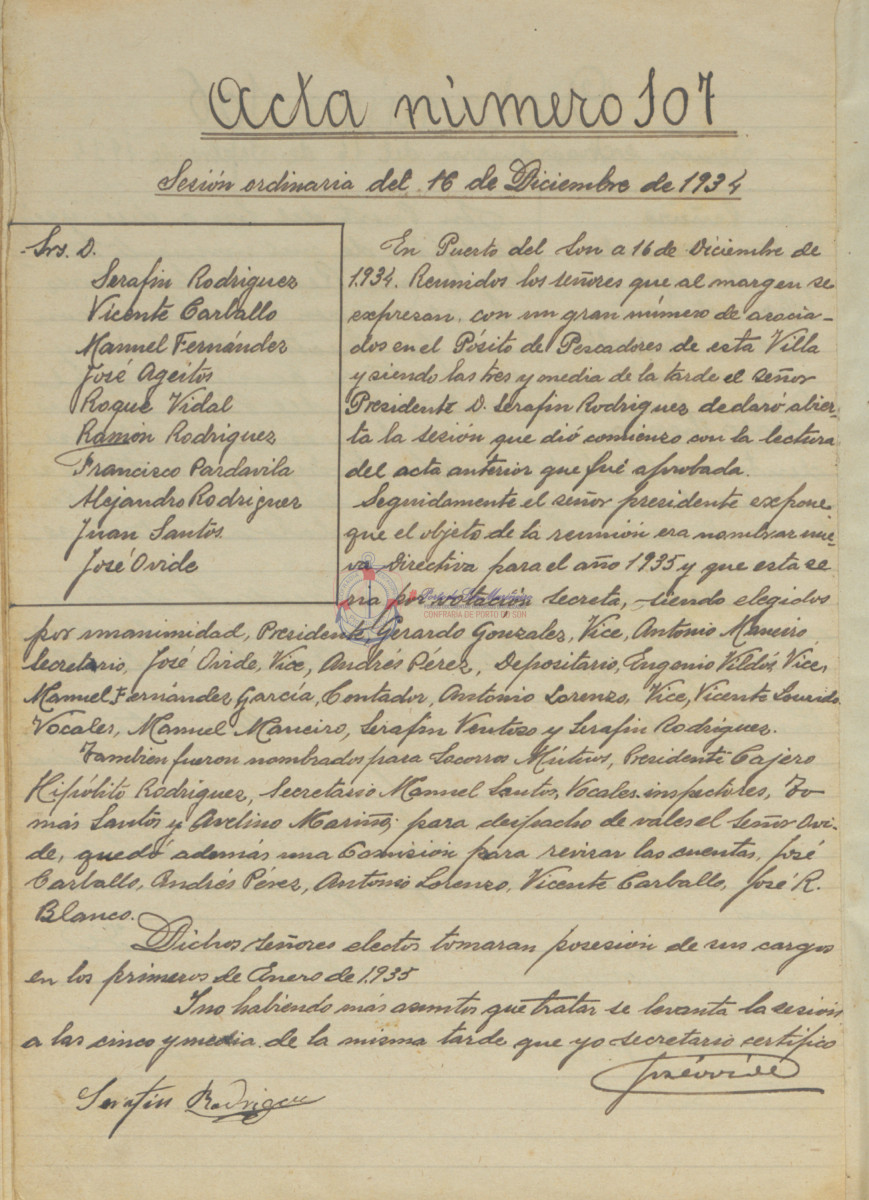 Acta número 107
Sesión ordinaria del 16 de Diciembre de 1934
Srs. D.
Serafin Rodriguez
Vicente Carballo
Manuel Fernández
José Ageitos
Roque Vidal
Ramón Rodriguez
Francisco Pardavila
Alejandro Rodriguez
Juan Santos
José Ovide
En Puerto del Son a 16 de Diciembre de
1.934. Reunidos los señores que al margen se
expresan con un gran número de asocia-
dos en el Pósito de Pescadores de esta Villa
y siendo las tres y media de la tarde el señor
Presidente D. Serafin Rodriguez declaró abier-
ta la sesión que dió comienzo con la lectura
del acta anterior que fué aprobada.
Seguidamente el señor presidente expone
que el objeto de la reunión era nombrar nue-
va Directiva para el año 1935 y que esta se
ria por votación secreta, siendo elegidos
por unanimidad, Presidente Gerardo Gonzalez, Vice, Antonio Maneiro
Secretario, José Ovide, Vice, Andrés Pérez, Depositario, Eugenio Vice,
Manuel Fernández García, Contador, Antonio Lorenzo, Vice, Vicente Lourido
Vocales, Manuel Maneiro, Serafin Ventoso y Serafin Rodriguez.
Tambien fueron nombrados para Socorros Mútuos, Presidente Cajero
Hipólito Rodriguez, Secretario Manuel Santos, Vocales inspectores, To
más Santos y Avelino Mariño; para despacho de vales el señor Ovi-
de, quedó además una Comisión para revisar las cuentas, José
Carballo, Andrés Pérez, Antonio Lorenzo, Vicente Carballo, José R.
Blanco.
Dichos señores electos tomaran posesión de sus cargos
en los primeros de Enero de 1.935
I no habiendo más asuntos que tratar se levanta la sesión
a las cinco y media de la misma tarde que yo secretario certifico
José Ovide
Serafin Rodriguez
CONFRARIA DE PORTO DO SON